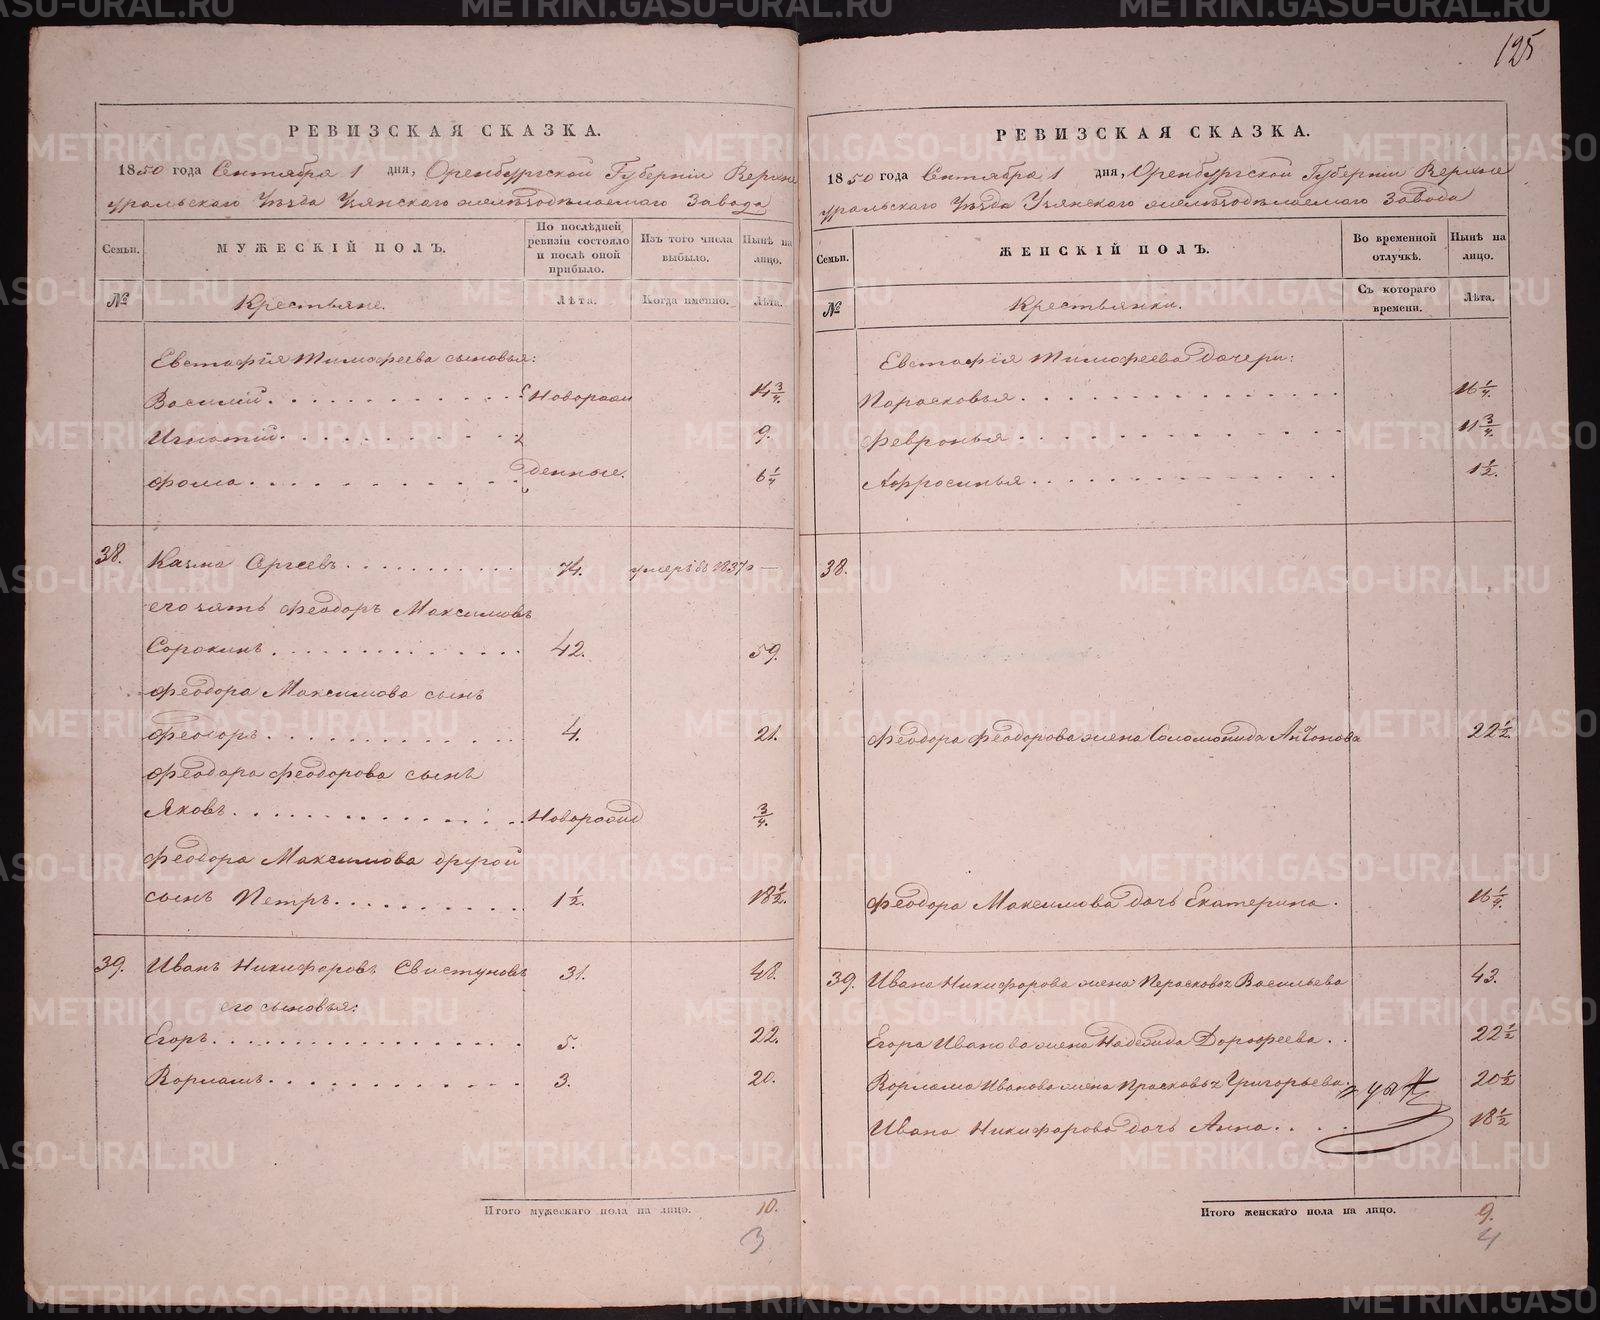 125
РЕВИЗСКАЯ СКАЗКА.
1850 года Сентября 1 дня, Оренбургской Губерніи Верхне
уральскаго Уѣзда Узянскаго желѣзодѣлаемаго Завода
Семьи. МУЖЕСКІЙ ПОЛЪ. По послѣдней ревизіи состояло и послѣ оной прибыло. Изъ того числа выбыло. Нынѣ на лицо.
№ Крестьяне. Лѣта. Когда именно. Лѣта.
Евстафія Тимофеева сыновья:
Василій. Новорож 14 3/4.
Игнатій. 9.
Фома. денные. 6 1/4
38. Казма Сергеевъ. 74. умеръ въ 1837 —
его зять Феодоръ Максимовъ
Сорокинъ. 42. 59.
Феодора Максимова сынъ
Феодоръ. 4. 21.
Феодора Феодорова сынъ
Яковъ. Новорожд 3/4.
Феодора Максимова другой
сынъ Петръ. 1 1/2. 18 1/2.
39. Иванъ Никифоровъ Свистуновъ 31. 48.
его сыновья:
Егоръ. 5. 22.
Варламъ. 3. 20.
Итого мужескаго пола на лицо. 10.
3
РЕВИЗСКАЯ СКАЗКА.
1850 года Сентября 1 дня, Оренбургской Губерніи Верхне
уральскаго Уѣзда Узянскаго желѣзодѣлаемаго Завода
Семьи. ЖЕНСКІЙ ПОЛЪ. Во временной отлучкѣ. Нынѣ на лицо.
№ Крестьянки. Съ котораго времени. Лѣта.
Евстафія Тимофеева дочери:
Парасковья. 16 1/4.
Февронья. 11 3/4.
Афросинья. 1 1/2.
38.
Феодора Феодорова жена Соломонида Антонова 22 1/2.
Феодора Максимова дочь Екатерина. 16 1/4.
39. Ивана Никифорова жена Парасковья Васильева 43.
Егора Иванова жена Надежда Дорофеева. 22 1/2
Варлама Иванова жена Прасковья Григорьева. 20 1/2
Ивана Никифорова дочь Анна. 18 1/2
Итого женскаго пола на лицо. 9.
4
METRIKI.GASO-URAL.RU